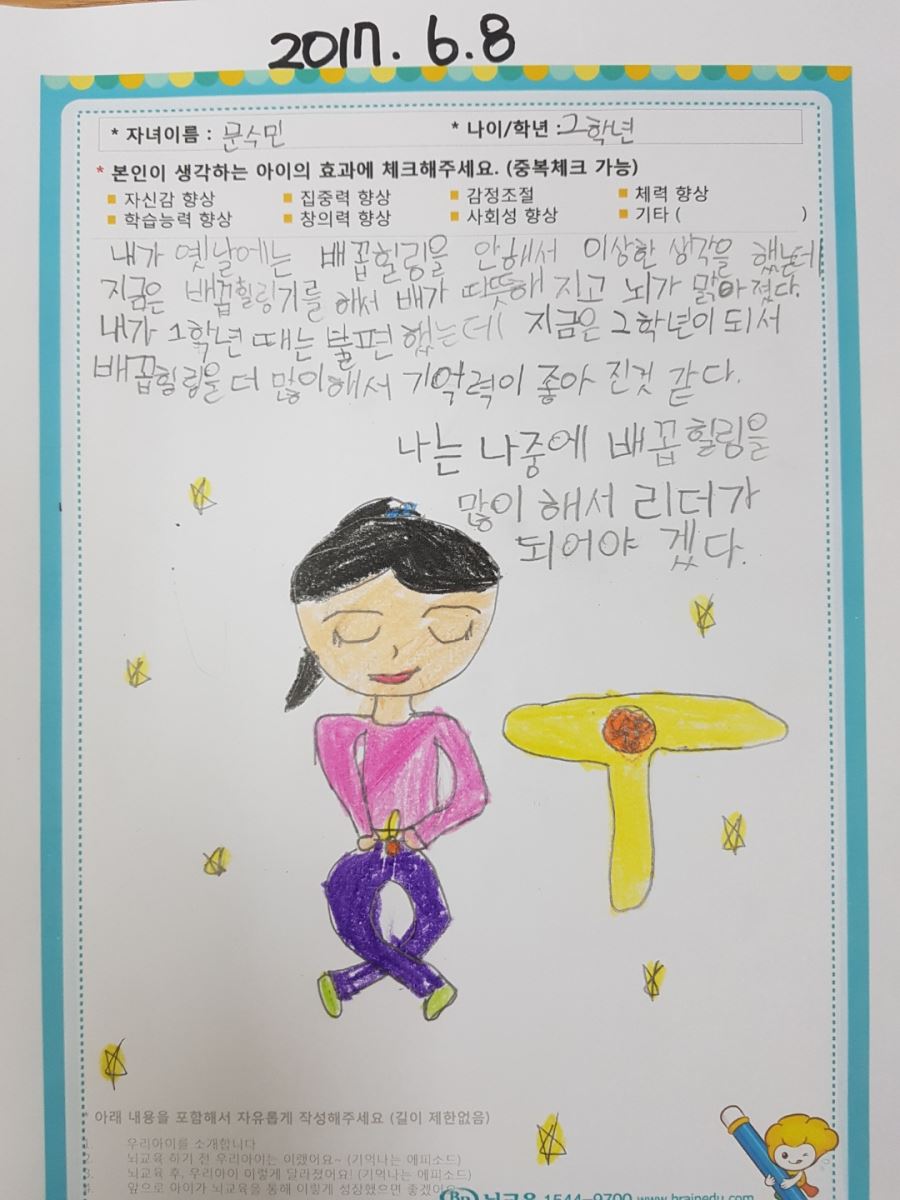 2017. 6.8
* 자녀이름 : 문수민 * 나이/학년 : 2학년
* 본인이 생각하는 아이의 효과에 체크해주세요. (중복체크 가능)
자신감 향상 집중력 향상 감정조절 체력 향상
학습능력 향상 창의력 향상 사회성 향상 기타 ( )
내가 옛날에는 배꼽힐링을 안해서 이상한 생각을 했는데
지금은 배꼽힐링기를 해서 배가 따뜻해 지고 뇌가 맑아졌다.
내가 1학년 때는 불편했는데 지금은 2학년이 되서
배꼽힐링을 더 많이해서 기억력이 좋아 진것 같다.
나는 나중에 배꼽힐링을
많이 해서 리더가
되어야 겠다.
* 아래 내용을 포함해서 자유롭게 작성해주세요 (길이 제한없음)
1. 우리아이를 소개합니다
2. 뇌교육 하기 전 우리아이는 이랬어요~ (기억나는 에피소드)
3. 뇌교육 후, 우리아이 이렇게 달라졌어요! (기억나는 에피소드)
4. 앞으로 아이가 뇌교육을 통해 이렇게 성장했으면 좋겠어요
BR 뇌교육 1544-9700 www.brainedu.com